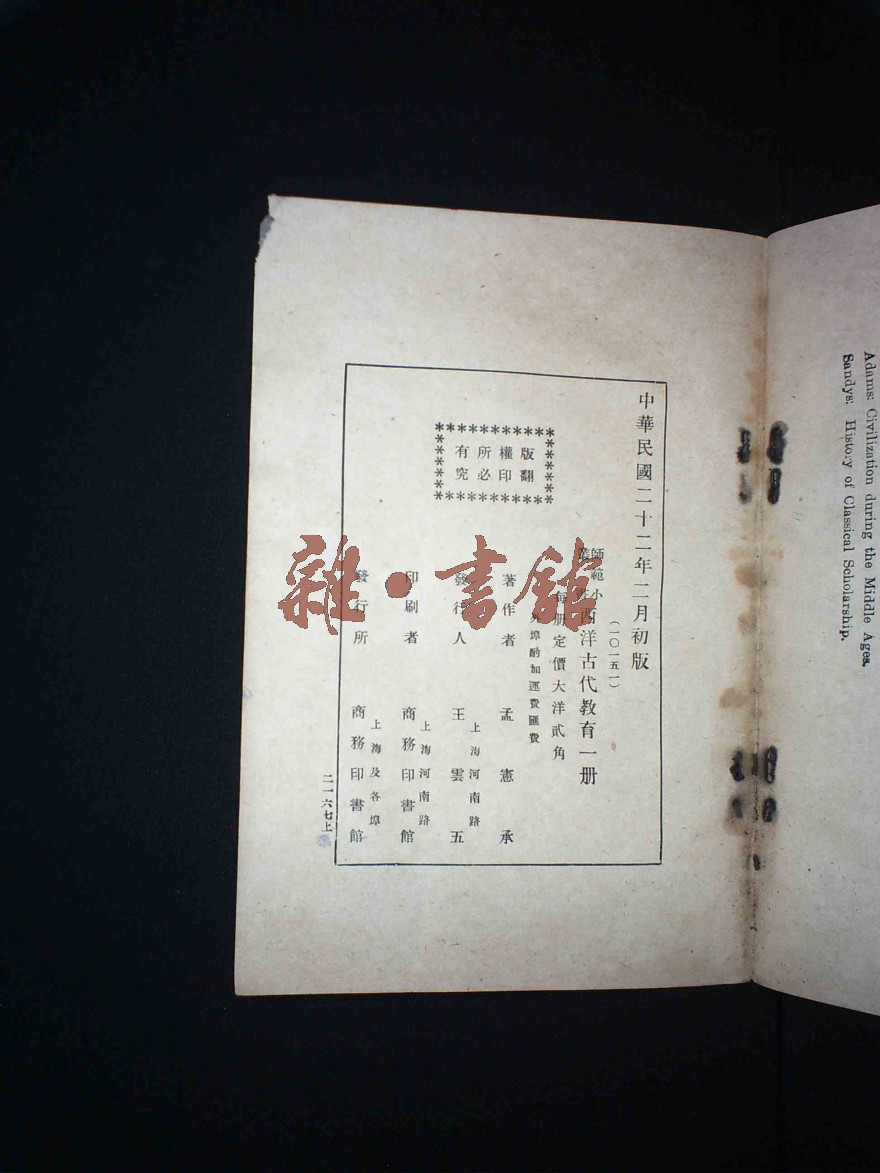 中華民國二十二年二月初版
(一〇一五一)
師範小叢書 西洋古代教育一册
每册定價大洋貳角
外埠酌加運費匯費
版權所有
翻印必究
著作者 孟憲承
發行人 王雲五
上海河南路
印刷者 商務印書館
上海河南路
發行所 商務印書館
上海及各埠
二一六七上
Adams: Civilization during the Middle Ages.
Sandys: History of Classical Scholarship.
雜·書館